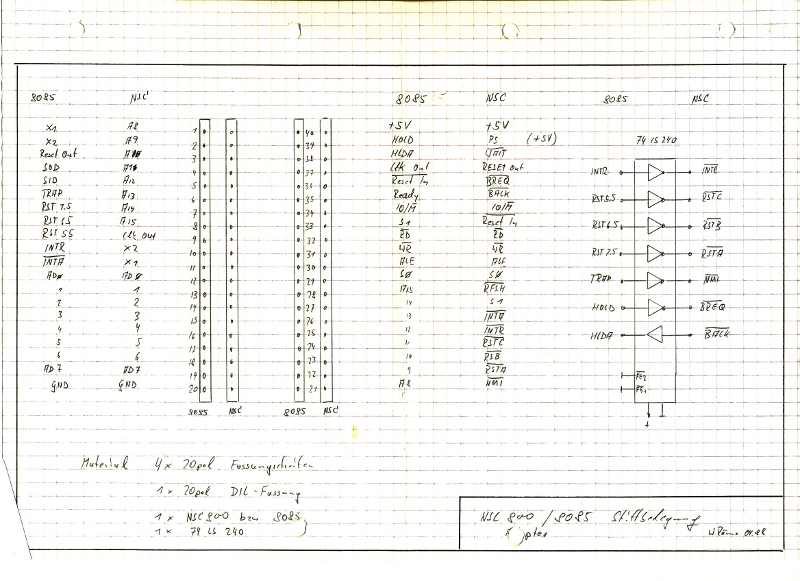 8085 NSC 8085 NSC 8085 NSC
X1 A8 1 40 +5V +5V 74 LS 240
X2 A9 2 39 HOLD PS (+5V)
Reset Out A10 3 38 HLDA WAIT
SOD A11 4 37 Clk Out RESET Out INTR INTR
SID A12 5 36 Reset In BREQ
TRAP A13 6 35 Ready BACK RST 5.5 RSTC
RST 7.5 A14 7 34 IO/M IO/M
RST 6.5 A15 8 33 S1 Reset In RST 6.5 RSTB
RST 5.5 Clk Out 9 32 RD RD
INTR X2 10 31 WR WR RST 7.5 RSTA
INTA X1 11 30 ALE ALE
AD0 AD0 12 29 S0 S0 TRAP NMI
1 1 13 28 A15 RFSH
2 2 14 27 14 S1 HOLD BREQ
3 3 15 26 13 INTA
4 4 16 25 12 INTR HLDA BACK
5 5 17 24 11 RSTC
6 6 18 23 10 RSB
AD7 AD7 19 22 9 RSTA
GND GND 20 21 A8 NMI
8085 NSC 8085 NSC
Material 4x 20pol. Fassungsstreifen
1x 20pol DIL-Fassung
1x NSC800 bzw 8085
1x 74 LS 240
NSC 800 / 8085 Stiftbelegung